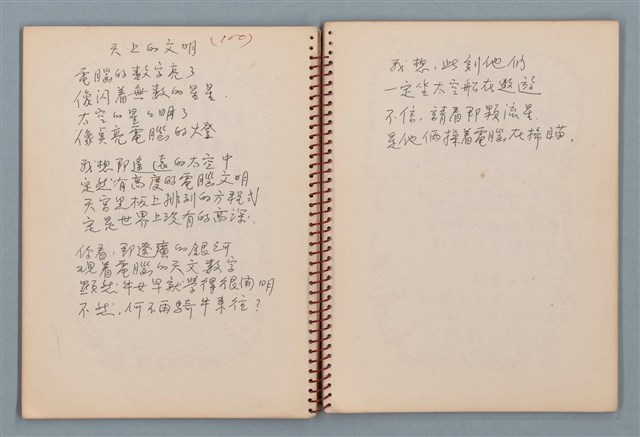 天上的文明 (100)
電腦的数字亮了
像闪着無数的星星.
太空的星星明了
像点亮電腦的灯
我想那遥遠的太空中
定然有高度的電腦文明
天宫黑板上排列的方程式
定是世界上没有的高深.
你看,那遼廣的銀河
現着電腦的天文数字
顕然牛女早就學得很開明
不然,何不再騎牛来往?
我想,此刻他们
一定坐太空船在遨遊
不信,請看那顆流星
是他俩操着電腦在掃瞄,